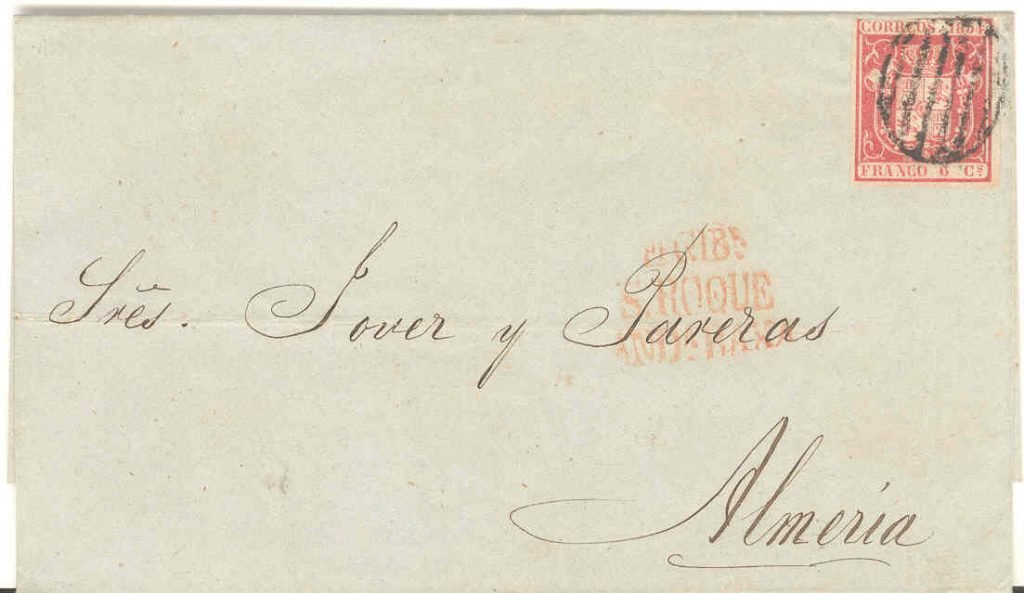 CORREOS 1854
FRANCO 6 Cs
S. ROQUE
Sres. Jover y Paveras
Almería